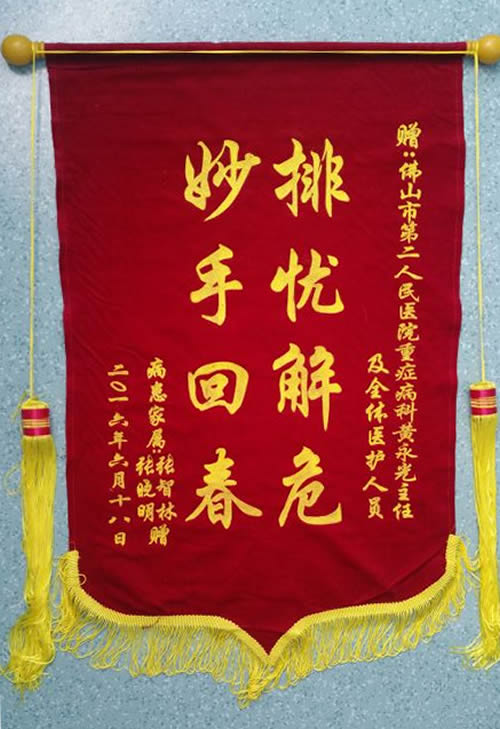 赠:佛山市第二人民医院重症病科黄永光主任
及全体医护人员
排忧解危
妙手回春
病患家属:张智林
张晓明 赠
二〇一六年六月十八日